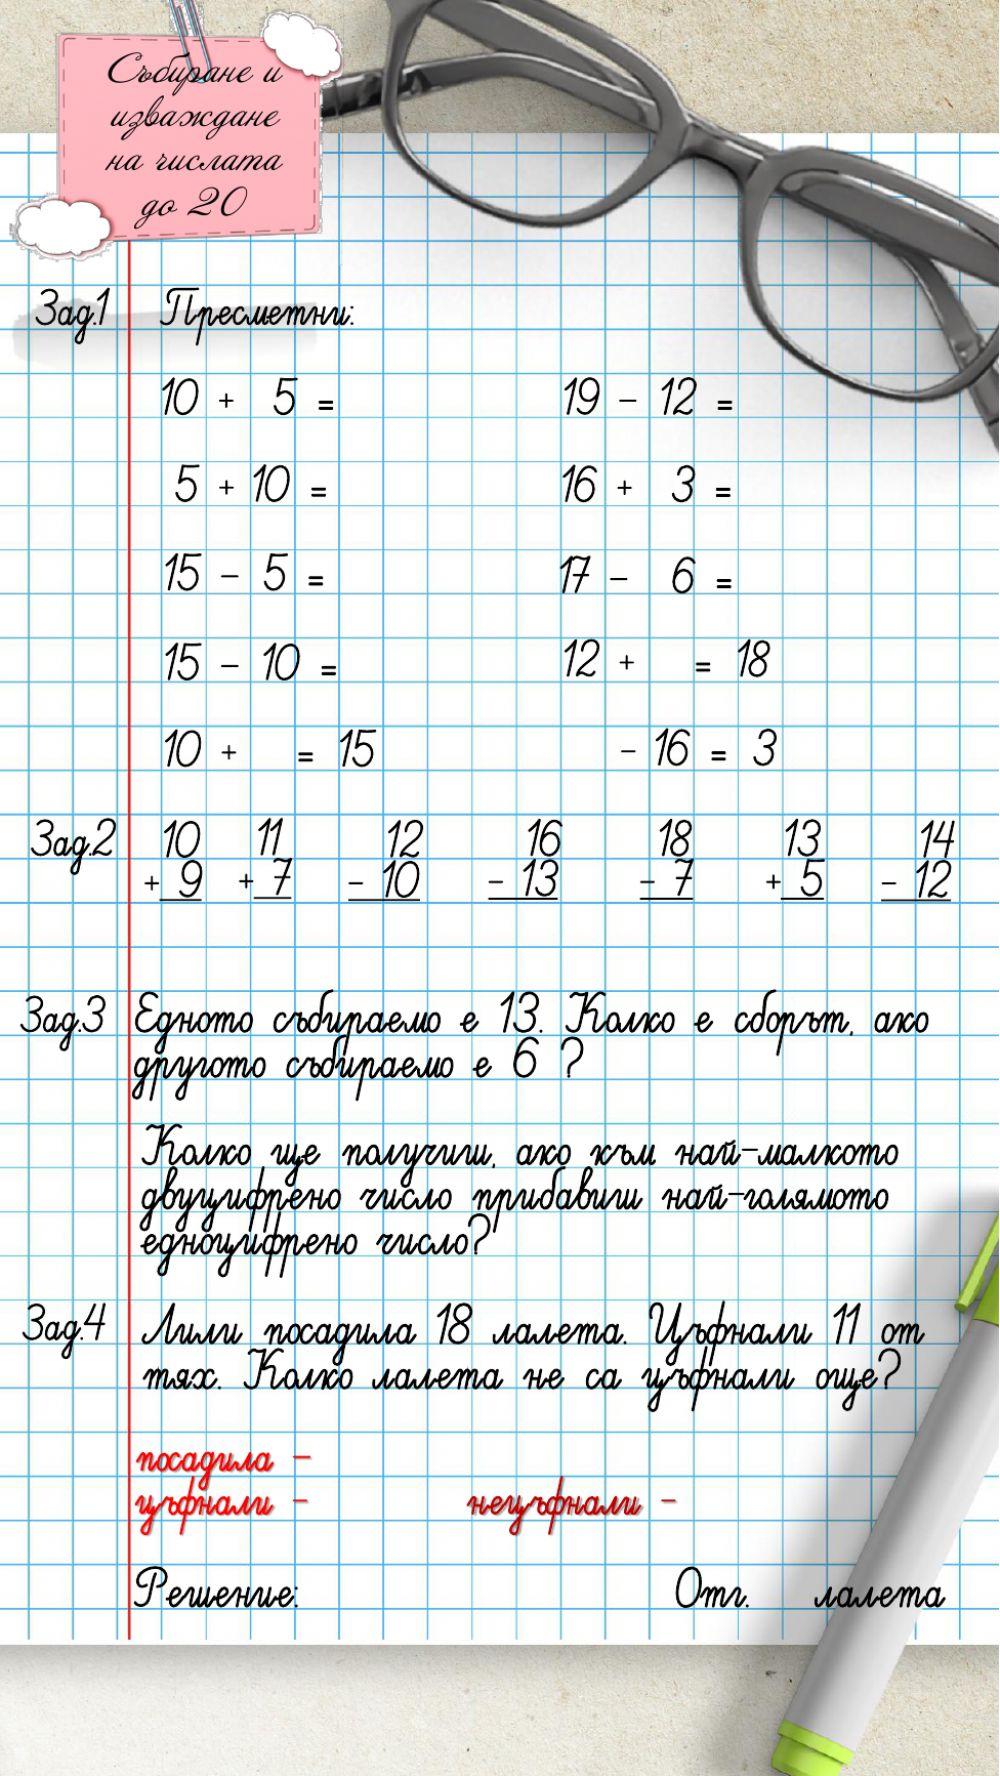 Събиране и
изваждане
на числата
до 20
Зад.1 Пресметни:
10 + 5 = 19 - 12 =
5 + 10 = 16 + 3 =
15 - 5 = 17 - 6 =
15 - 10 = 12 + = 18
10 + = 15 - 16 = 3
Зад.2 10 11 12 16 18 13 14
+ 9 + 7 - 10 - 13 - 7 + 5 - 12
Зад.3 Едното събираемо е 13. Колко е сборът, ако
другото събираемо е 6 ?
Колко ще получиш, ако към най-малкото
двуцифрено число прибавиш най-голямото
едноцифрено число?
Зад.4 Лили посадила 18 лалета. Цъфнали 11 от
тях. Колко лалета не са цъфнали още?
посадила -
цъфнали - нецъфнали -
Решение: Отг. лалета